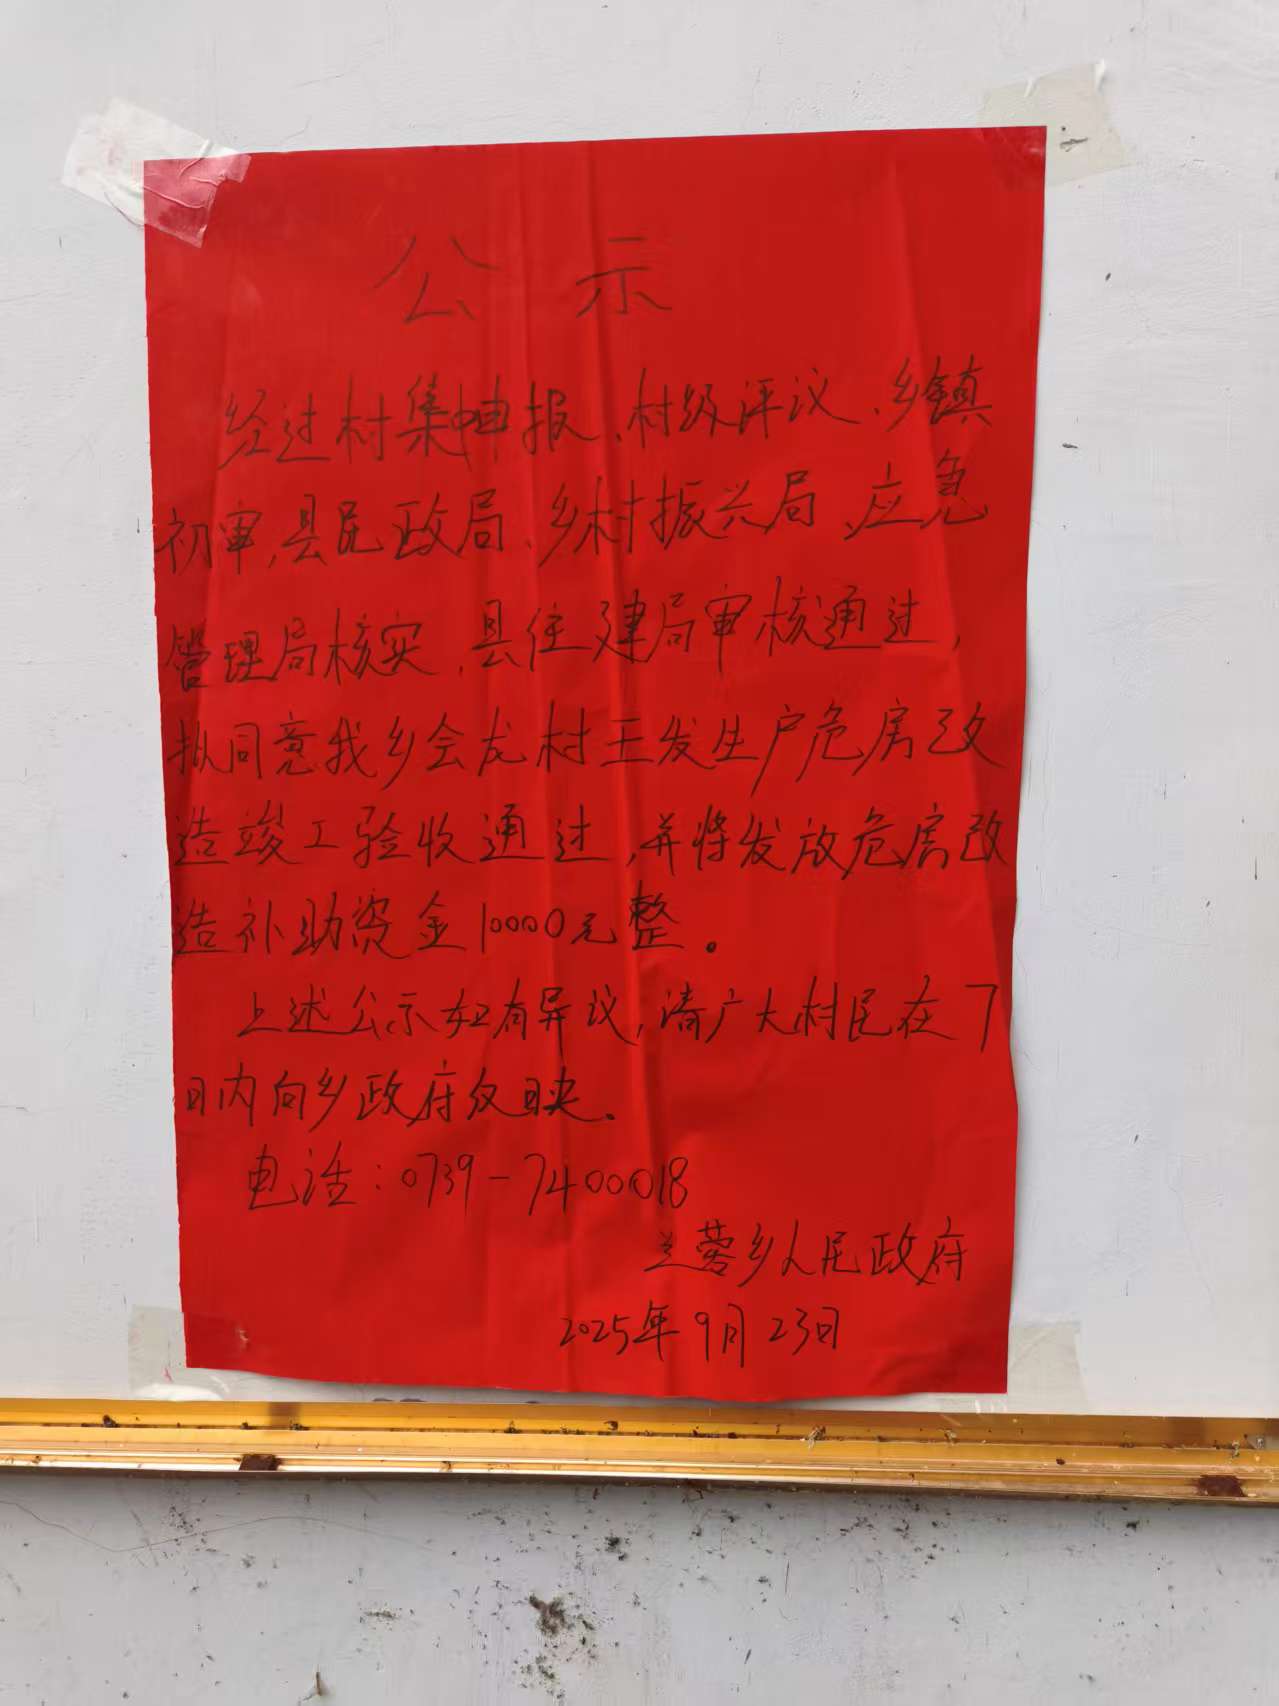 公示
经过村集中申报、村级评议、乡镇
初审，县民政局、乡村振兴局、应急
管理局核实，县住建局审核通过，
拟同意我乡会龙村王发生户危房改
造竣工验收通过，并将发放危房改
造补助资金10000元整。
上述公示如有异议，请广大村民在7
日内向乡政府反映。
电话：0739-7400018
兰蓉乡人民政府
2025年9月23日